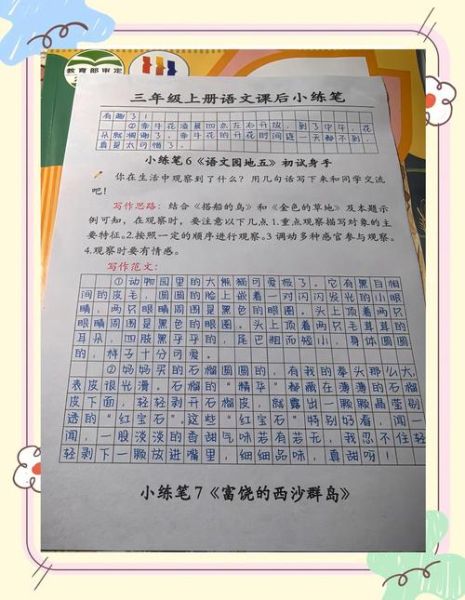 教育部审定
三年级上册语文课后小练笔
有趣了!
②牵牛花凌晨四点左右开放,到了中午,花
朵就凋谢了。牵牛花的开花时间连一天都不到,
真是太可惜了。
小练笔6《语文园地五》初试身手
你在生活中观察到了什么?用几句话写下来和同学交流
吧!
写作思路:结合《搭船的鸟》和《金色的草地》及本题示
例可知,在观察时,要注意以下几点1.重点观察描写对象的主
要特征。2.按照一定的顺序进行观察。3调动多种感官参与观察。
4.观察时要有情感。
写作范文:
①动物园里的大熊猫可爱极了。它有黑白相
间的皮毛,圆圆的脸上嵌着一对闪闪发光的小眼
睛,两只眼睛周围是黑色的眼圈。头上顶着两只
眼睛周围是黑色的眼圈。头上顶着两只毛茸茸的
耳朵,四肢黑乎乎的,尾巴粗而短小,身体圆圆
的,样子十分可爱。
②妈妈买的石榴圆圆的,有我的拳头那么大,
表皮很光滑。石榴的“精华”都藏在薄薄的石榴
皮下面,轻轻剥开石榴皮,就露出一颗颗晶莹剔
透的“红宝石”。这些“红宝石”特别好看,闻一
闻,一股淡淡的香甜气味若有若无,我忍不住轻
轻剥下一颗放进嘴里,细细品味,真甜呀!
小练笔7《富饶的西沙群岛》